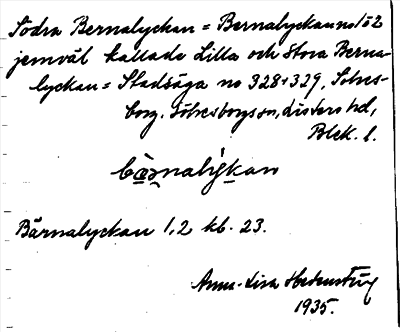 Södra Bernalyckan = Bernalyckan no 1 o 2
jemväl kallade Lilla och Stora Berna-
lyckan = Stadsäga no 328 + 329, Sölves-
borg, Sölvesborgs sn, Listers hd,
Blek. l.
Bärnalyckan 1, 2 kb. 23.
Anna-Lisa
1935.